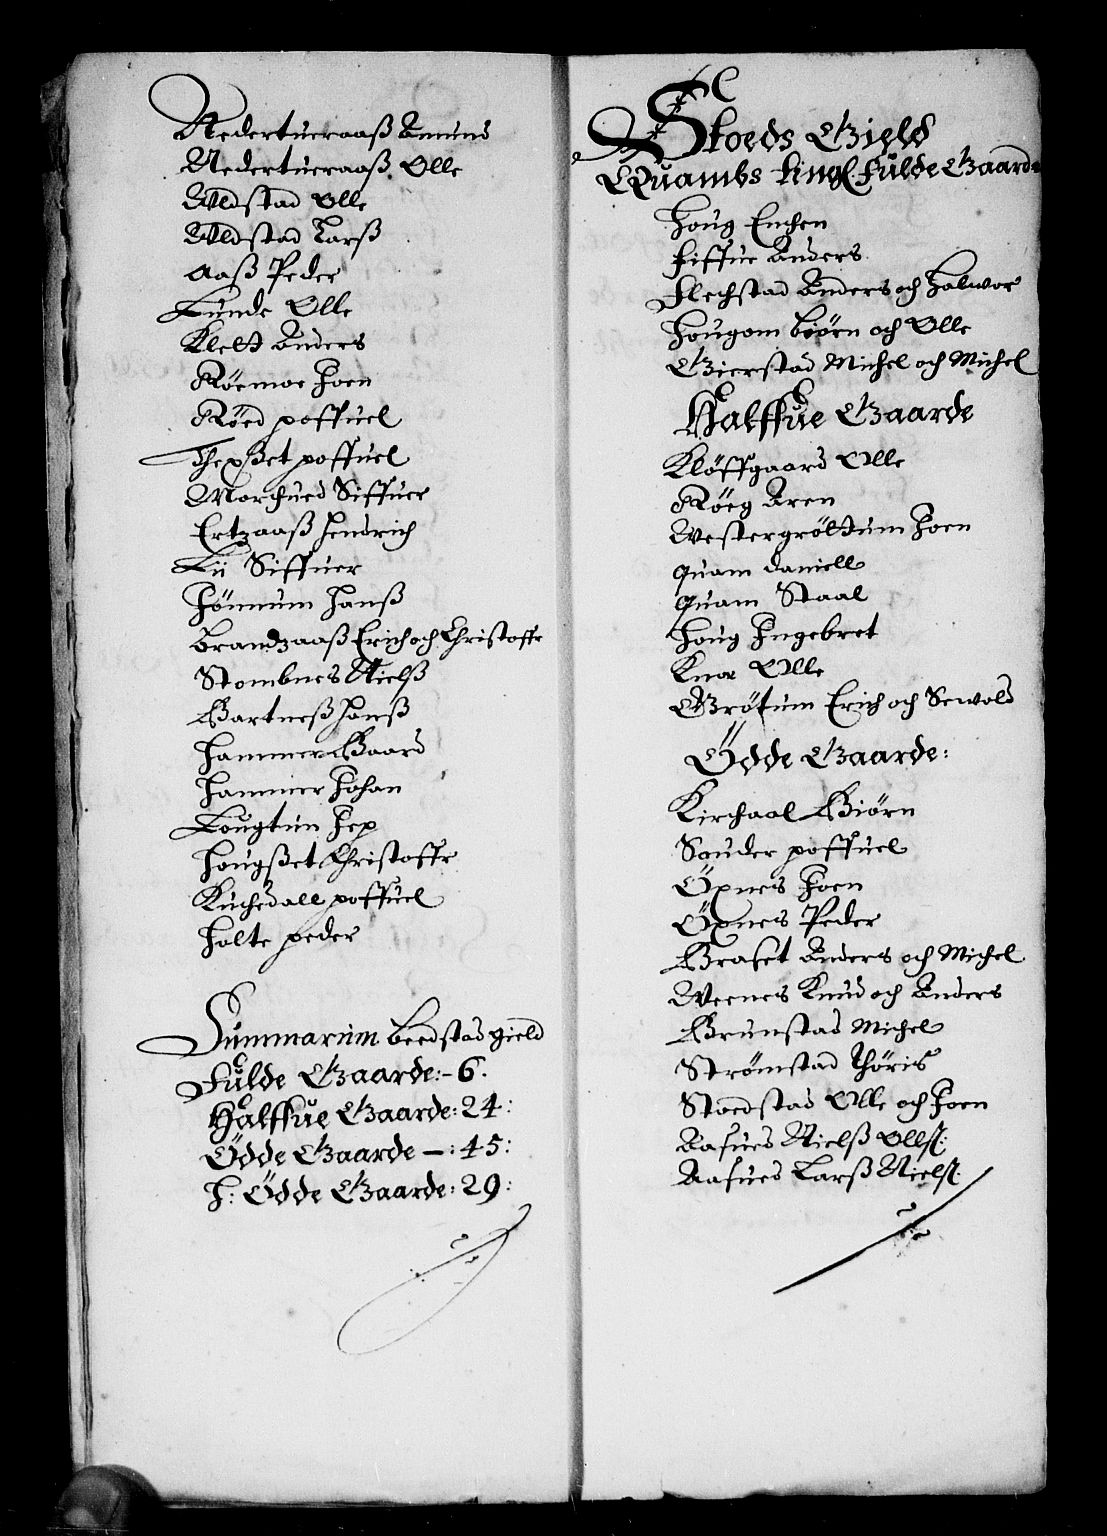 Nedertueraaß Amund
Nedertueraaß Olle
Wldstad Olle
Wldstad Larß
Aaß Peder
Lunde Olle
Klett Anders
Røemoe Joen
Røed poffuel
Thexßet poffuel
Morchued Siffuer
Ertzaaß Hendrich
Lii Siffuer
Hönnum Hanß
Brandzaaß Erich och Christoffr
Stombnes Nielß
Gartneß Hanß
Hammer Baard
Hammer Johan
Lougtun Jep
Hougßet Christoffr
Kuchedall poffuel
Holte peder
Summarum Beedstad gield
Fulde Gaarde:- 6.
Halffue Gaarde: 24:
Ödde Gaarde —: 45:
H: Ödde Gaarde: 29:
Stoeds Gield
Quambs tingl fulde Gaarde
Houg Enchen
Fiffue Anders
Flechstad Anders och Halwor
Hougom Biörn och Olle
Gierstad Michel och Michel
Halffue Gaarde
Klöffgaard Olle
Röeg Aren
Westergröttum Joen
Quam Daniell
Quam Staal
Houg Ingebret
Knoe Olle
Gröttum Erich och Sewold
Ödde Gaarde:
Kirchaal Biörn
Sauder poffuel
Öxnes Joen
Öxnes Peder
Braset Anders och Michel
Weenes Knud och Anders
Brunstad Michel
Strömstad Thöris
Stoedstad Olle och Joen
Aasues Nielß Ollß:
Aasues Larß Nielß: